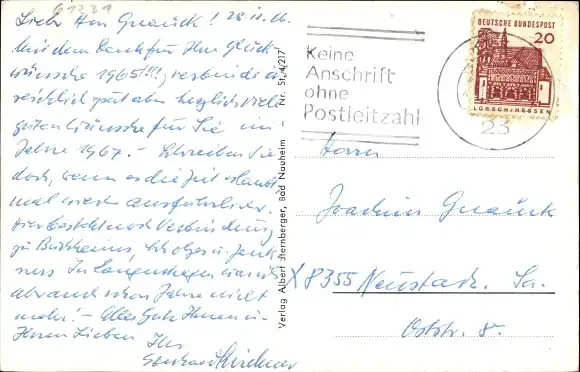 61231
Lieber Herr Gnauck! 28.12.66
Mit dem Dank für Ihre Glück-
wünsche 1965!!!, verbinde
reichlich spät aber herzlich viele
guten Wünsche für Sie im
Jahre 1967. – Schreiben Sie
doch, wenn es die Zeit erlaubt
mal wieder ausführlicher.
Hier besteht noch Verbindung
zu
In Langenhagen war ich
aber auch schon Jahre nicht
mehr! – Alles Gute Ihnen u.
Ihren Lieben Ihr
Eberhard Kirchner
Verlag Albert Sternberger, Bad Nauheim Nr. St. 4/217
Keine
Anschrift
ohne
Postleitzahl
23
DEUTSCHE BUNDESPOST
20
LORSCH/HESSEN
Herrn
Joachim Gnauck
X 8355 Neustadt. Sa.
Oststr. 8.